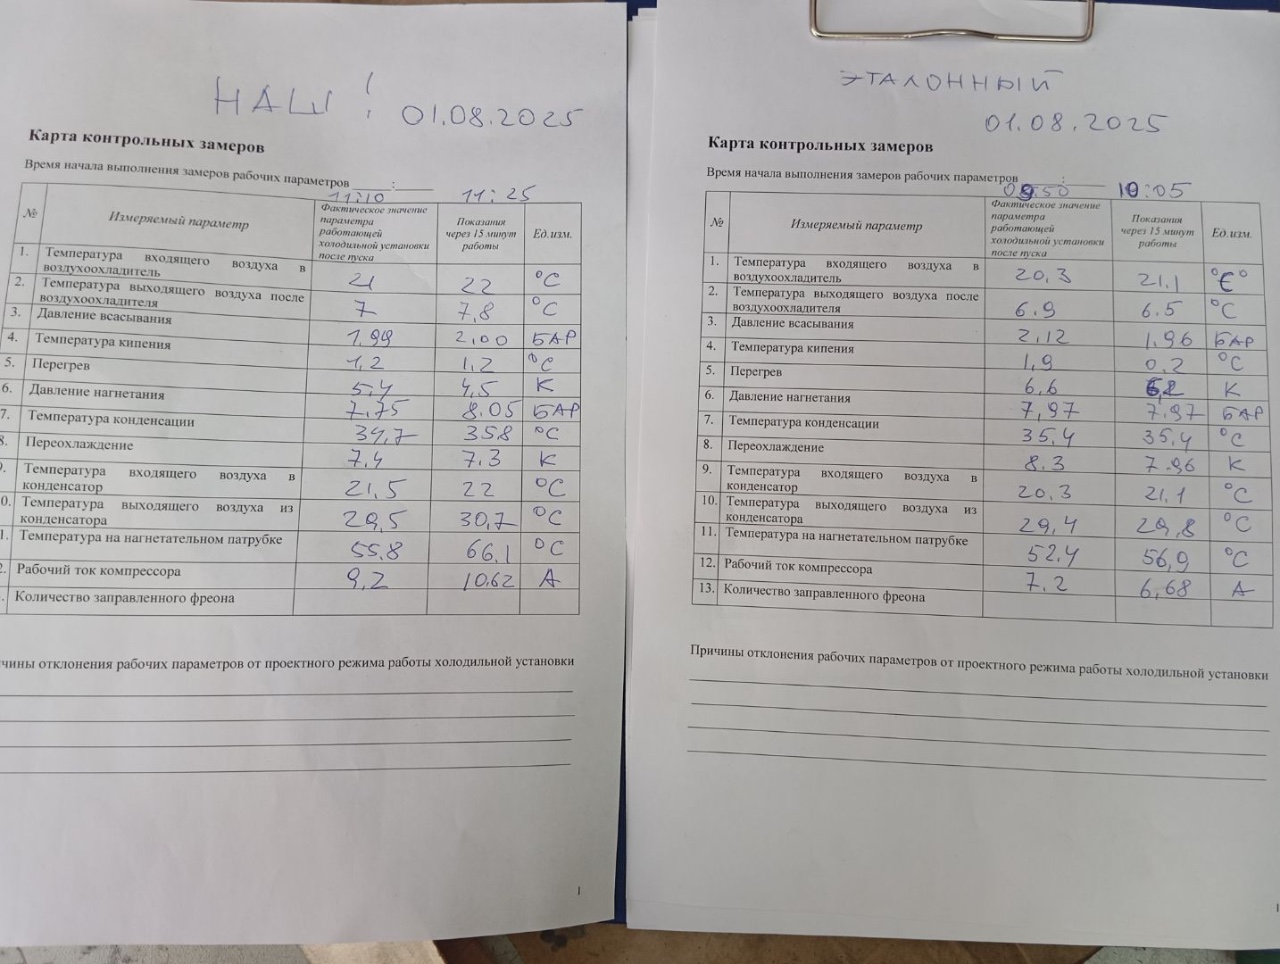 НАШ! 01.08.2025
Карта контрольных замеров
Время начала выполнения замеров рабочих параметров ____:____
11:10 11:25
№ Измеряемый параметр Фактическое значение параметра работающей холодильной установки после пуска Показания через 15 минут работы Ед.изм.
1. Температура входящего воздуха в воздухоохладитель 21 22 °C
2. Температура выходящего воздуха после воздухоохладителя 7 7,8 °C
3. Давление всасывания 1,99 2,00 БАР
4. Температура кипения 1,2 1,2 °C
5. Перегрев 5,4 4,5 К
6. Давление нагнетания 7,75 8.05 БАР
7. Температура конденсации 34,7 35.8 °C
8. Переохлаждение 7,4 7.3 К
9. Температура входящего воздуха в конденсатор 21,5 22 °C
0. Температура выходящего воздуха из конденсатора 29,5 30,7 °C
1. Температура на нагнетательном патрубке 55.8 66,1 °C
2. Рабочий ток компрессора 9,2 10.62 А
. Количество заправленного фреона
чины отклонения рабочих параметров от проектного режима работы холодильной установки
1
ЭТАЛОННЫЙ
01.08.2025
Карта контрольных замеров
Время начала выполнения замеров рабочих параметров ____:____
09:50 10:05
№ Измеряемый параметр Фактическое значение параметра работающей холодильной установки после пуска Показания через 15 минут работы Ед.изм.
1. Температура входящего воздуха в воздухоохладитель 20,3 21,1 °C
2. Температура выходящего воздуха после воздухоохладителя 6.9 6.5 °C
3. Давление всасывания 2,12 1,96 БАР
4. Температура кипения 1,9 0,2 °C
5. Перегрев 6,6 К
6. Давление нагнетания 7,97 7.97 БАР
7. Температура конденсации 35,4 35,4 °C
8. Переохлаждение 8.3 7.96 К
9. Температура входящего воздуха в конденсатор 20.3 21.1 °C
10. Температура выходящего воздуха из конденсатора 29,4 29,8 °C
11. Температура на нагнетательном патрубке 52.4 56,9 °C
12. Рабочий ток компрессора 7.2 6,68 А
13. Количество заправленного фреона
Причины отклонения рабочих параметров от проектного режима работы холодильной установки
1